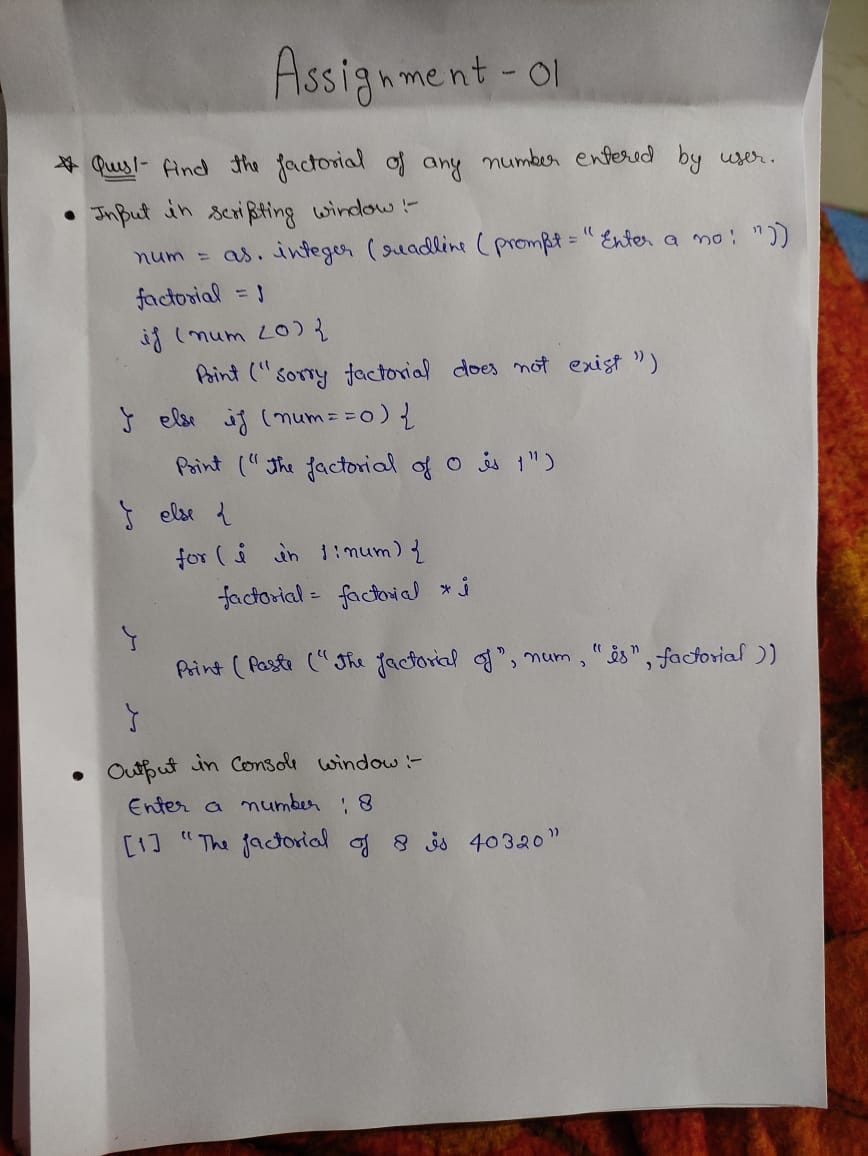 Assignment - 01
* Ques1- find the factorial of any number entered by user.
• Input in scripting window :-
num = as.integer (readline (prompt = "Enter a no: "))
factorial = 1
if (num <0) {
Print ("sorry factorial does not exist ")
} else if (num==0) {
Print ("The factorial of 0 is 1")
} else {
for (i in 1:num) {
factorial = factorial * i
}
Print (Paste ("The factorial of", num, "is", factorial ))
}
• Output in Console window :-
Enter a number : 8
[1] "The factorial of 8 is 40320"